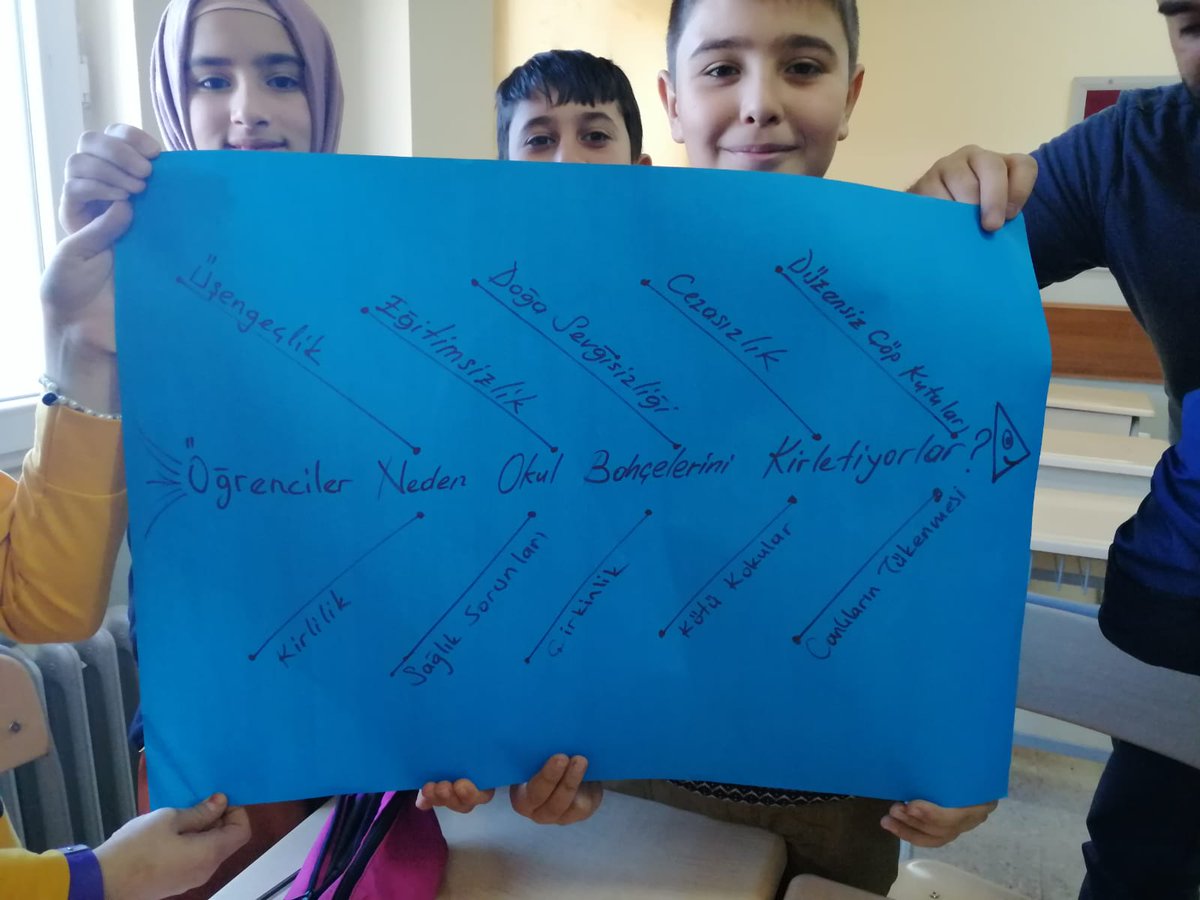 Üşengeçlik
Eğitimsizlik
Doğa Sevğisizliği
Cezasızlık
Düzensiz Çöp Kutuları
Öğrenciler Neden Okul Bahçelerini Kirletiyorlar?
Kirlilik
Sağlık Sorunları
Çirkinlik
Kötü Kokular
Canlıların Tükenmesi